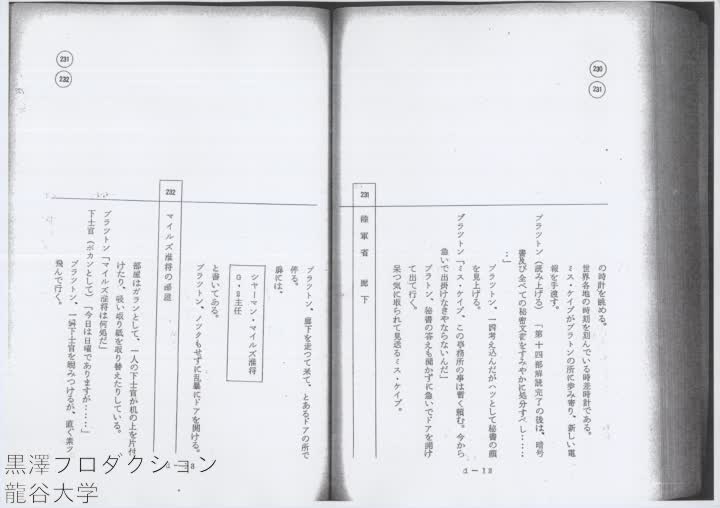 230
231
の時計を眺める。
世界各地の時刻を刻んでいる時差時計である。
ミス・ケイプがブラトンの所に歩み寄り、新しい電
報を手渡す。
ブラツトン（読み上げる）「第十四部解読完了の後は、暗号
書及び全べての秘密文書をすみやかに処分すべし‥‥
‥」
ブラツトン、一瞬考え込んだがハツとして秘書の顔
を見上げる。
ブラツトン「ミス・ケイプ、この事務所の事は暫く頼む。今から
急いで出掛けなきやならないんだ」
ブラトン、秘書の答えも聞かずに急いでドアを開け
て出て行く。
呆つ気に取られて見送るミス・ケイプ。
231 陸軍省 廊下
d－12
231
232
ブラツトン、廊下を走つて来て、とあるドアの所で
停る。
扉には、
シヤーマン・マイルズ准将
G・2主任
と書いてある。
ブラツトン、ノツクもせずに乱暴にドアを開ける。
232 マイルズ准将の部屋
部屋はガランとして、一人の下士官が机の上を片付
けたり、吸い取り紙を取り替えたりしている。
ブラツトン「マイルズ准将は何処だ」
下士官（ポカンとして）「今日は日曜でありますが‥‥‥」
ブラツトン、一瞬下士官を睨みつけるが、直ぐ素ツ
飛んで行く。
黒澤プロダクション
龍谷大学